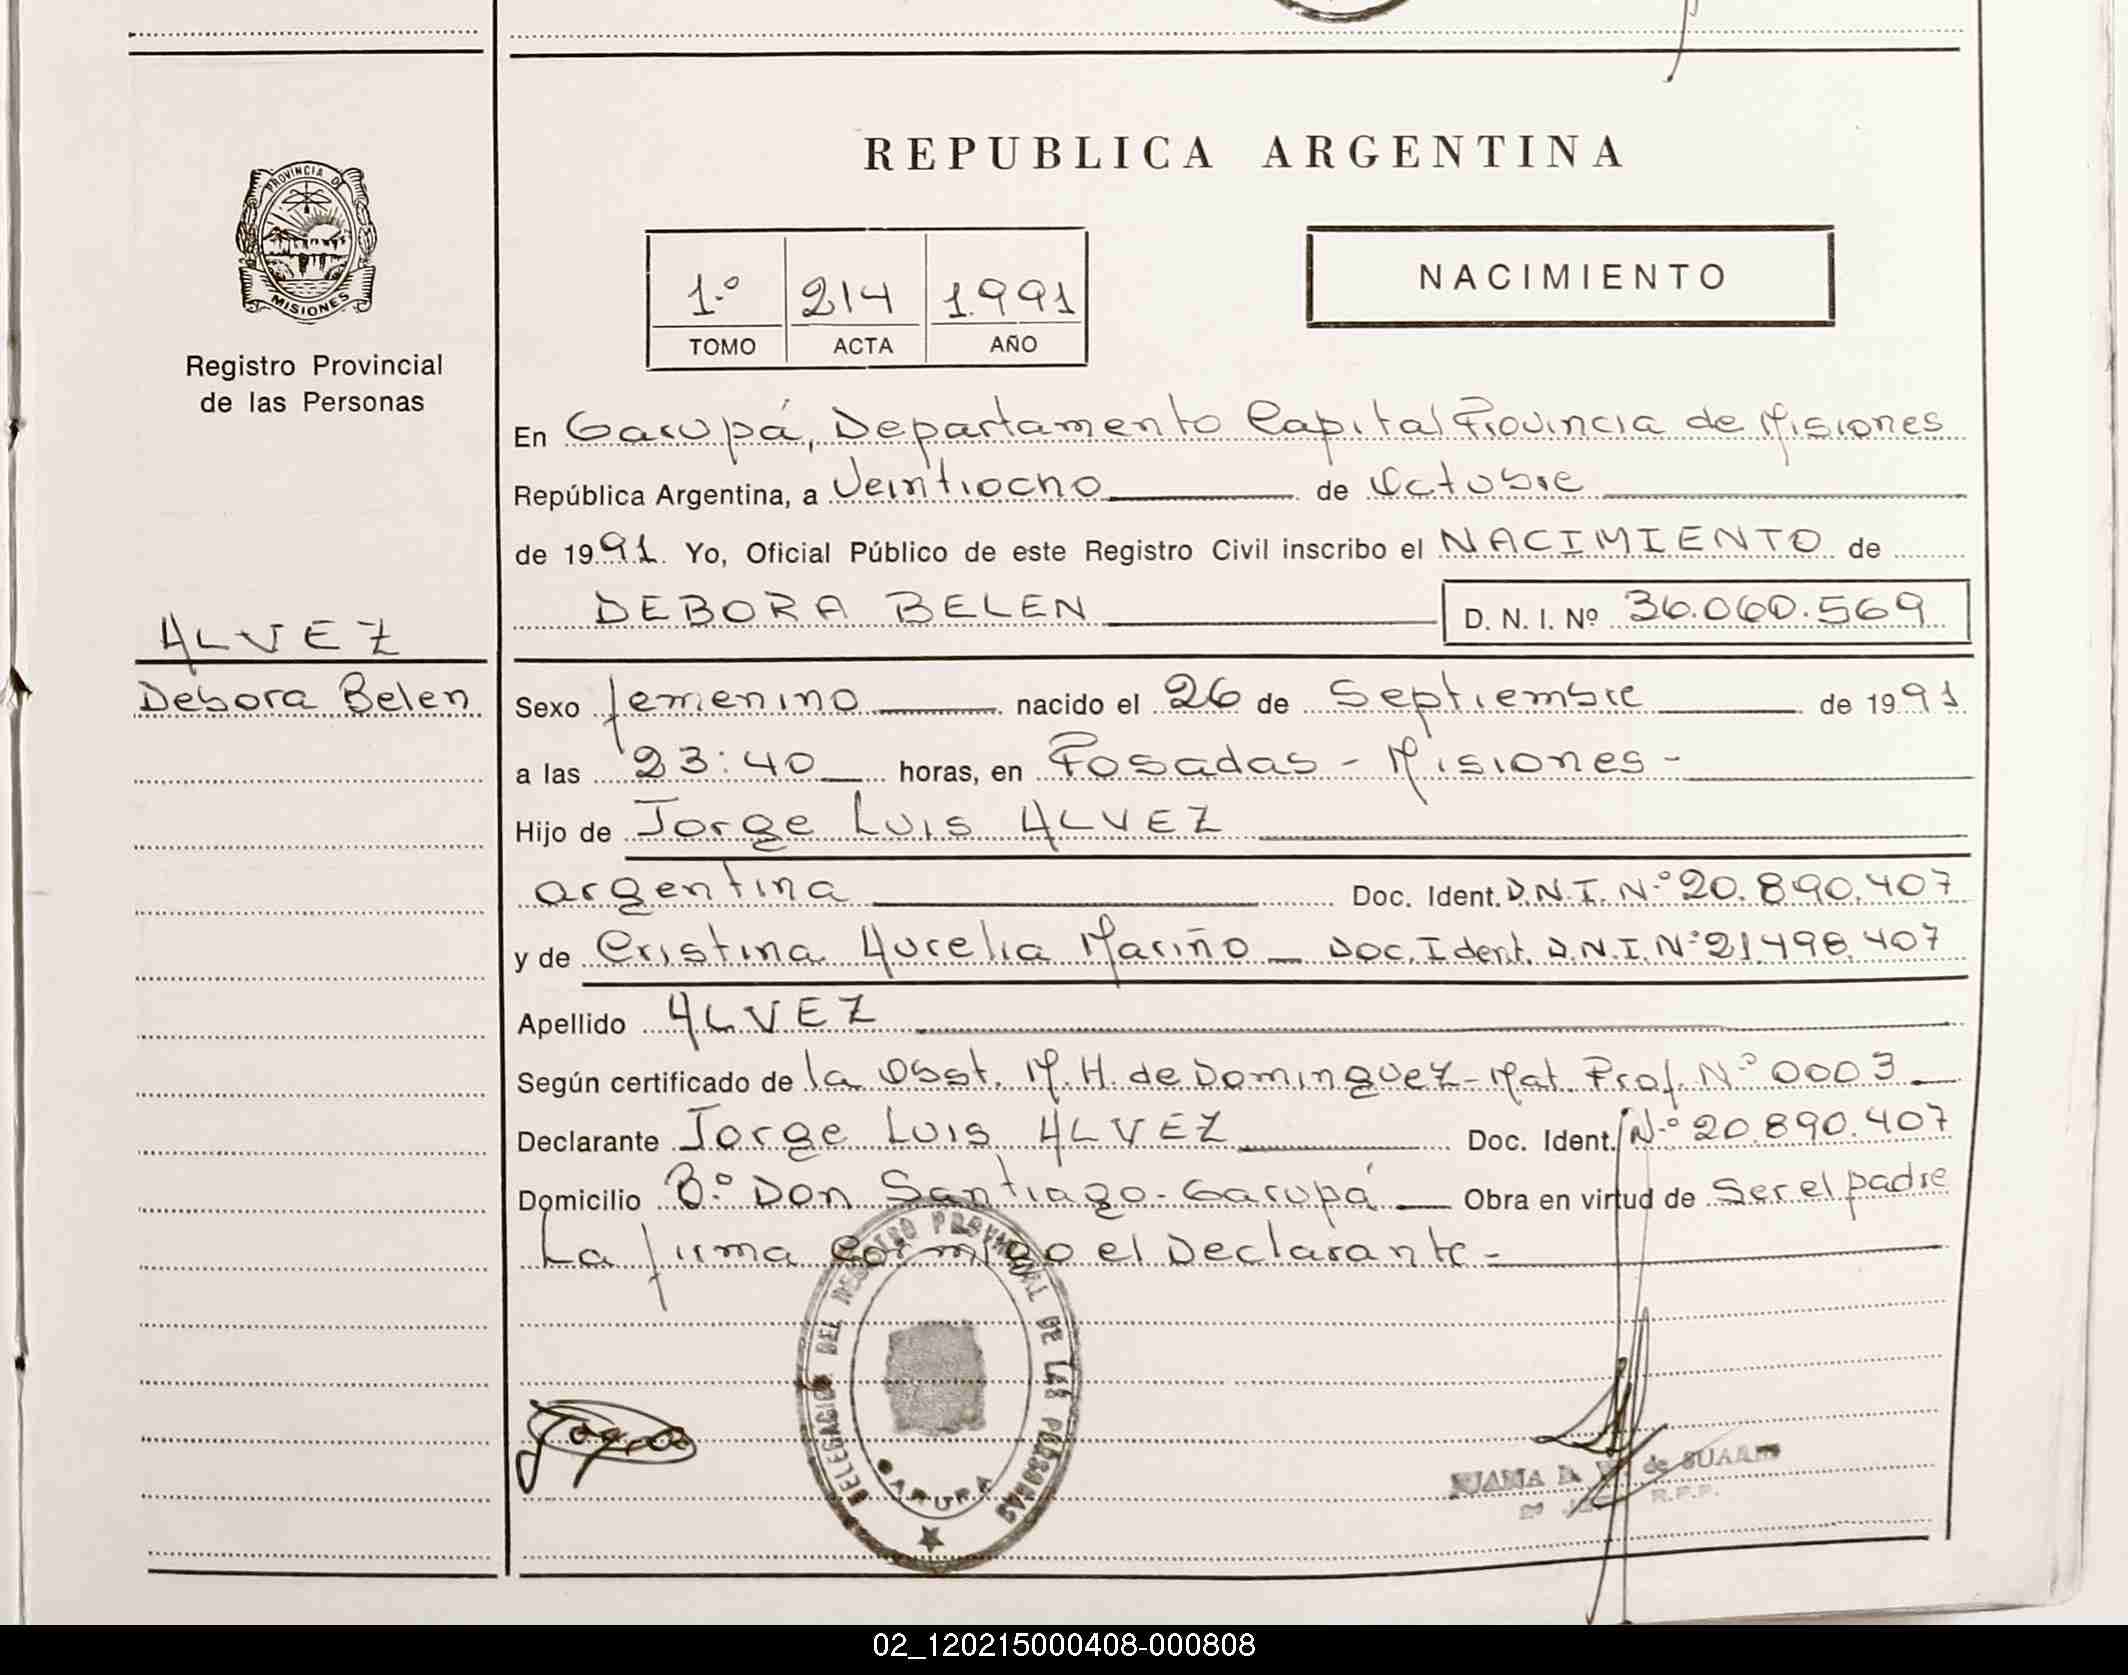 PROVINCIA DE
MISIONES
Registro Provincial
de las Personas
ALVEZ
Debora Belen
REPUBLICA ARGENTINA
1.º 214 1.991
TOMO ACTA AÑO
NACIMIENTO
En Garupá, Departamento Capital Provincia de Misiones
República Argentina, a Veintiocho de Octubre
de 1991. Yo, Oficial Público de este Registro Civil inscribo el NACIMIENTO de
DEBORA BELEN D. N. I. Nº 36.060.569
Sexo femenino nacido el 26 de Septiembre de 1991
a las 23:40 horas, en Posadas - Misiones -
Hijo de Jorge Luis ALVEZ
argentina Doc. Ident. D.N.I. N.º 20.890.407
y de Cristina Aurelia Mariño - Doc. Ident. D.N.I. Nº 21.498.407
Apellido ALVEZ
Según certificado de la Obst. M. H. de Dominguez - Mat. Prof. Nº 0003
Declarante Jorge Luis ALVEZ Doc. Ident. N.º 20.890.407
Domicilio Bº Don Santiago - Garupá Obra en virtud de Ser el padre
La firma conmigo el Declarante -
DELEGACION DEL REGISTRO PROVINCIAL DE LAS PERSONAS
GARUPA
JUANA de SUAREZ
R.P.P.
02_120215000408-000808